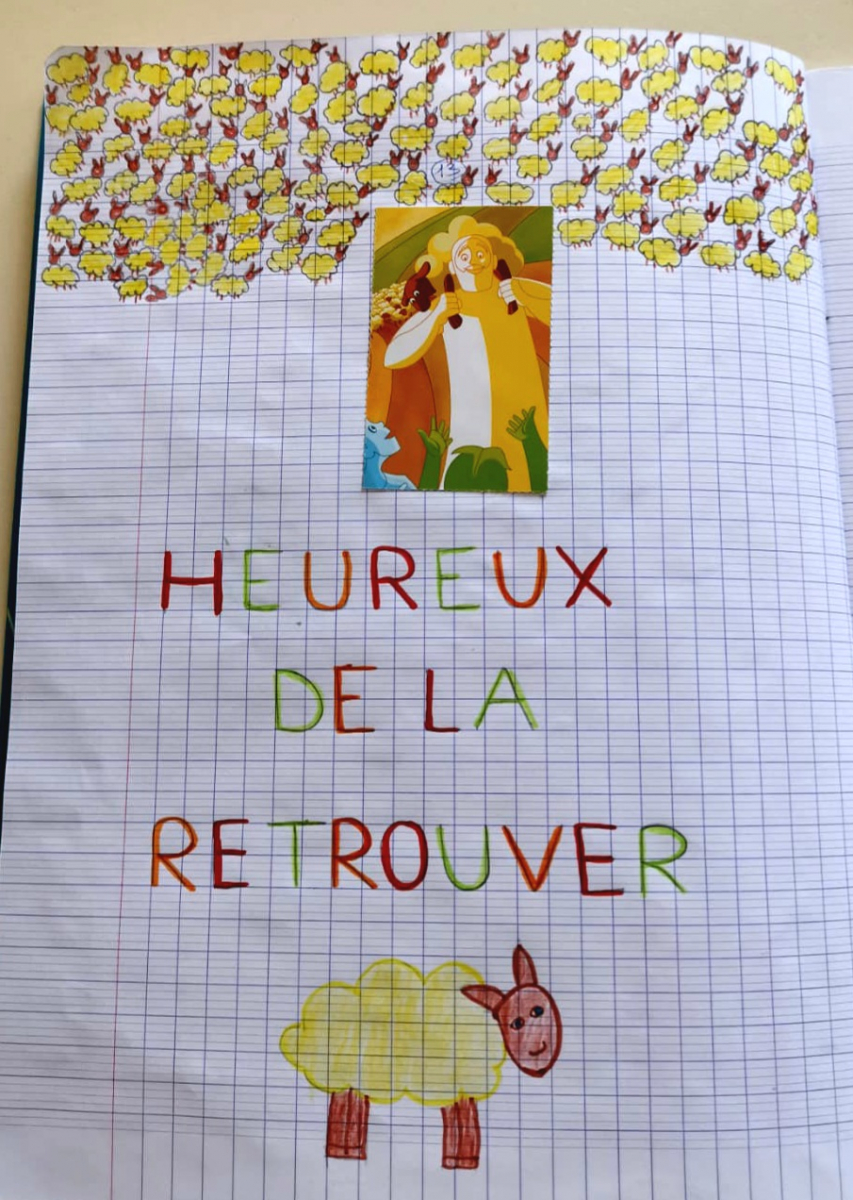 13
HEUREUX
DE LA
RETROUVER